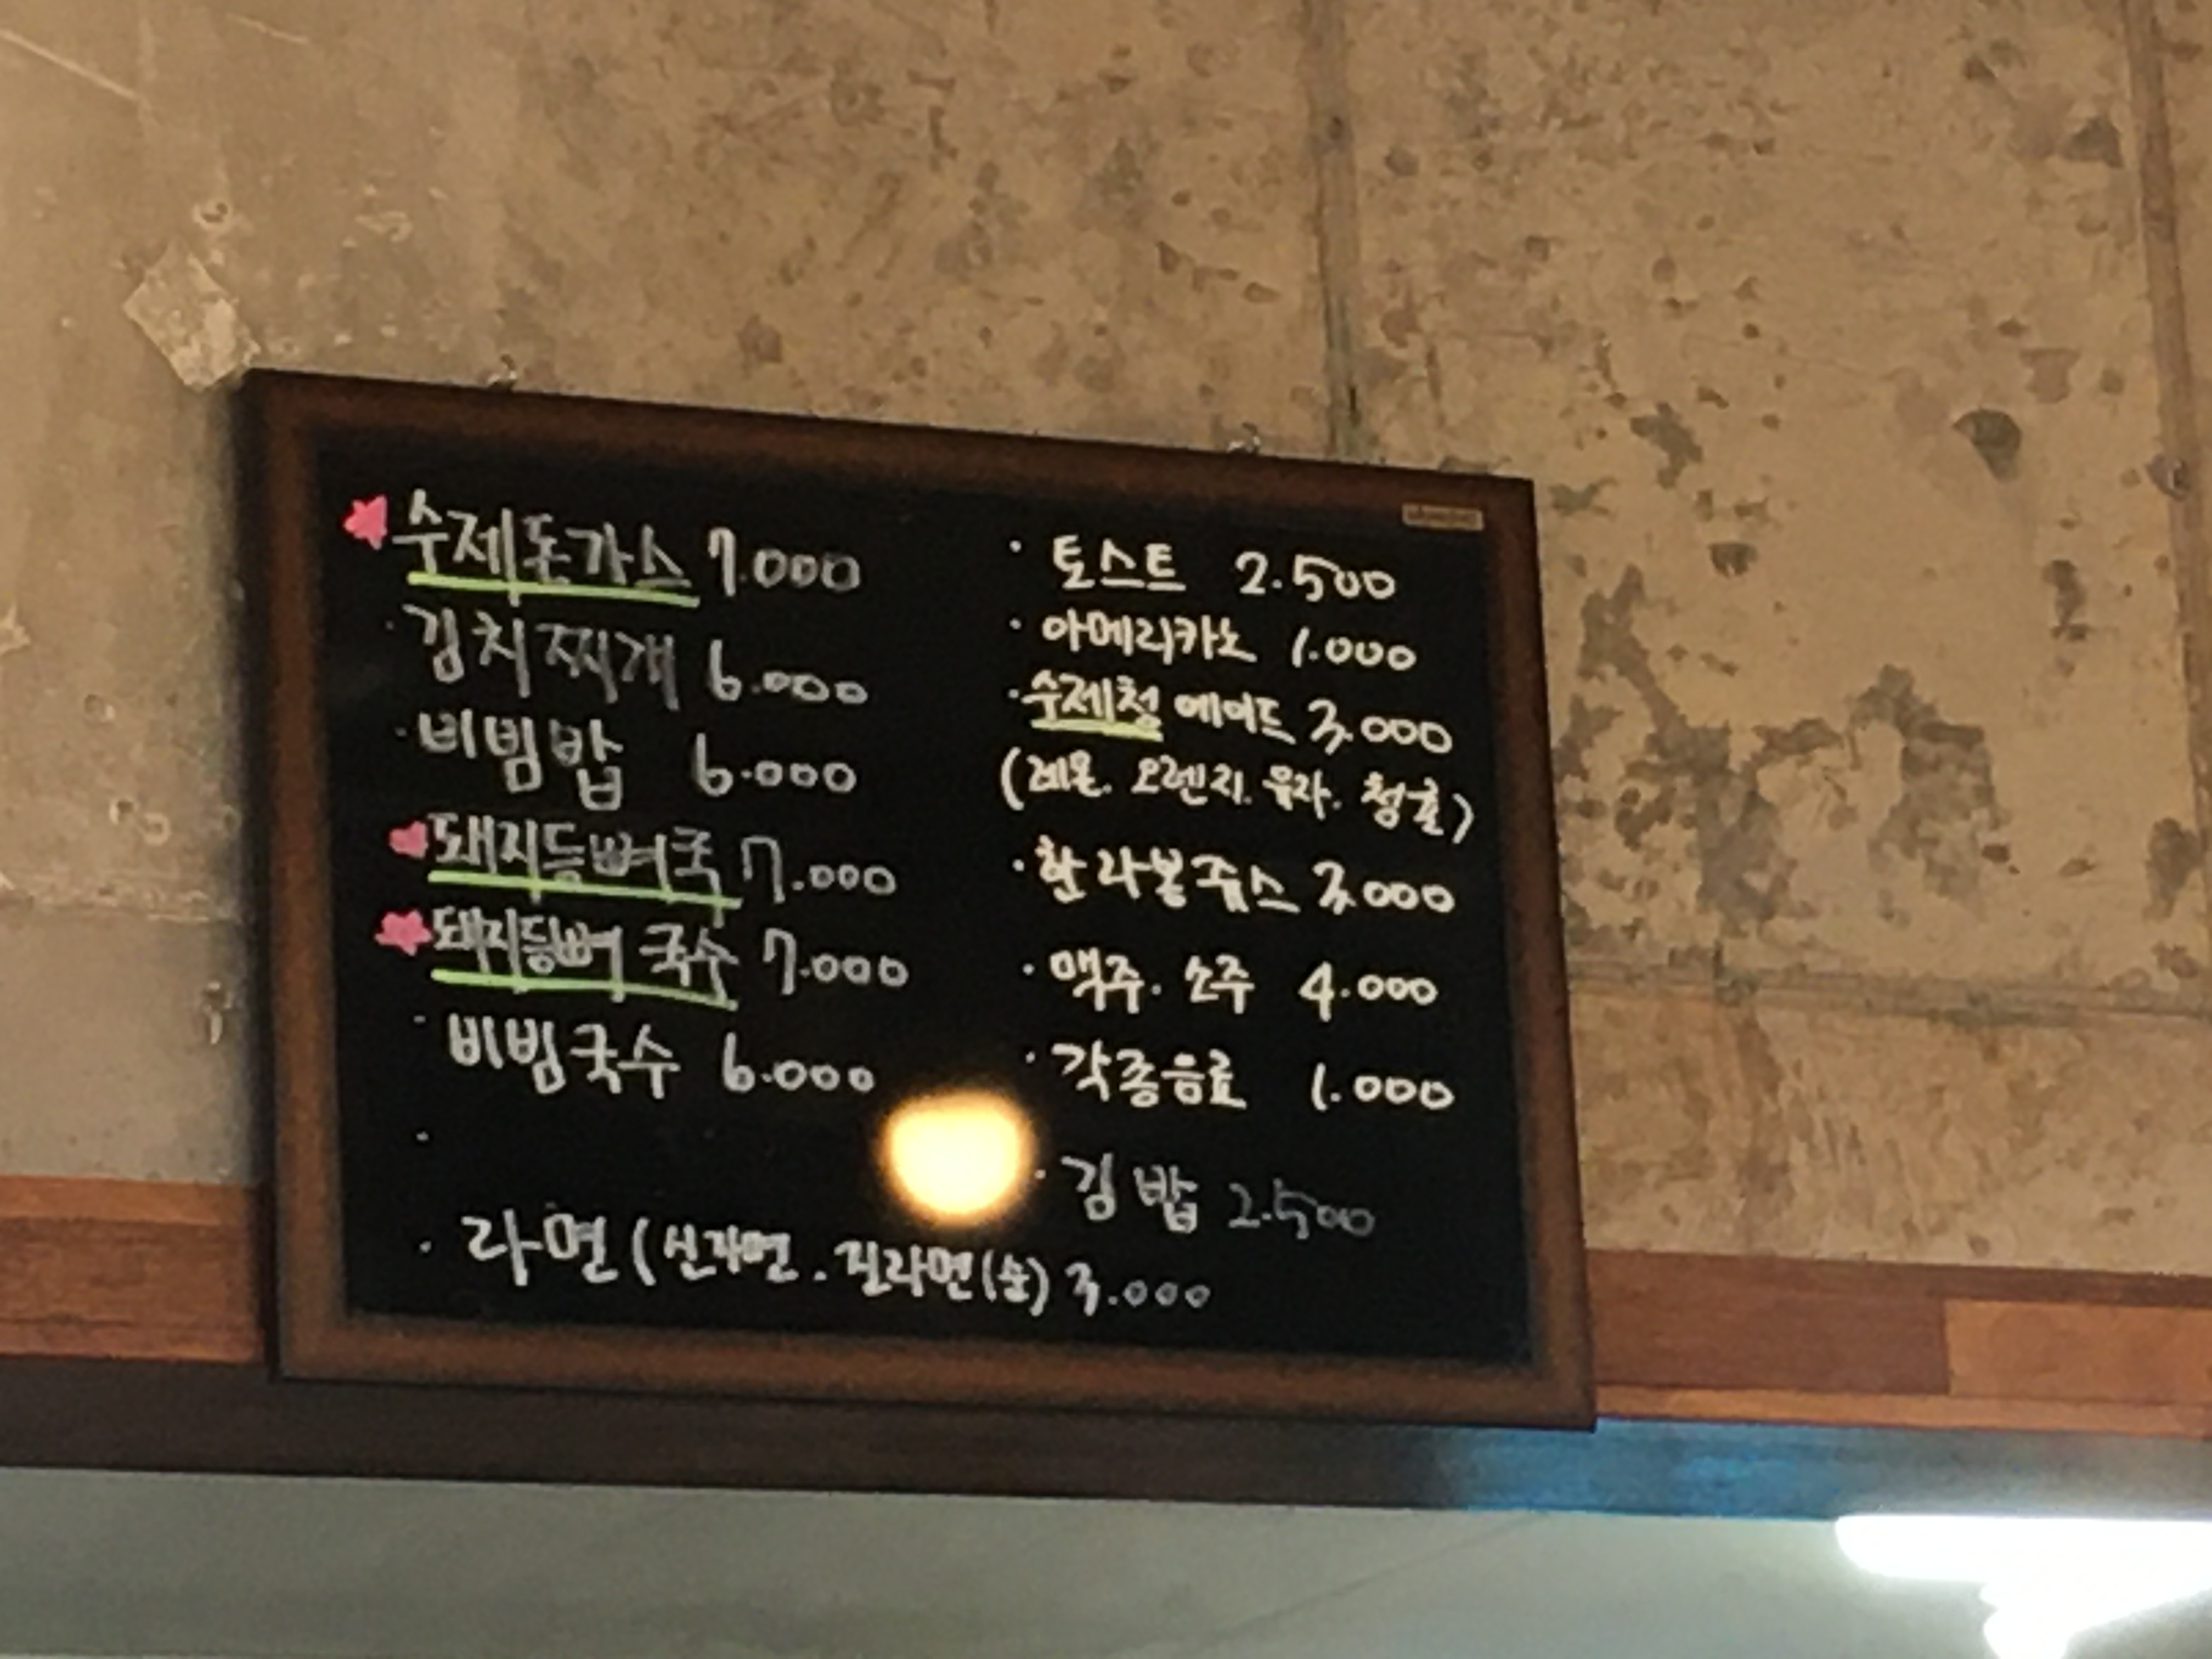 수제돈가스 7.000
· 김치찌개 6.000
· 비빔밥 6.000
돼지등뼈국 7.000
돼지등뼈 국수 7.000
· 비빔국수 6.000
·
· 토스트 2.500
· 아메리카노 1.000
· 수제청 에이드 3.000
(레몬. 오렌지. 유자. 청귤)
· 한라봉쥬스 3.000
· 맥주. 소주 4.000
· 각종음료 1.000
· 김밥 2.500
· 라면 (신라면. 진라면(순) 3.000